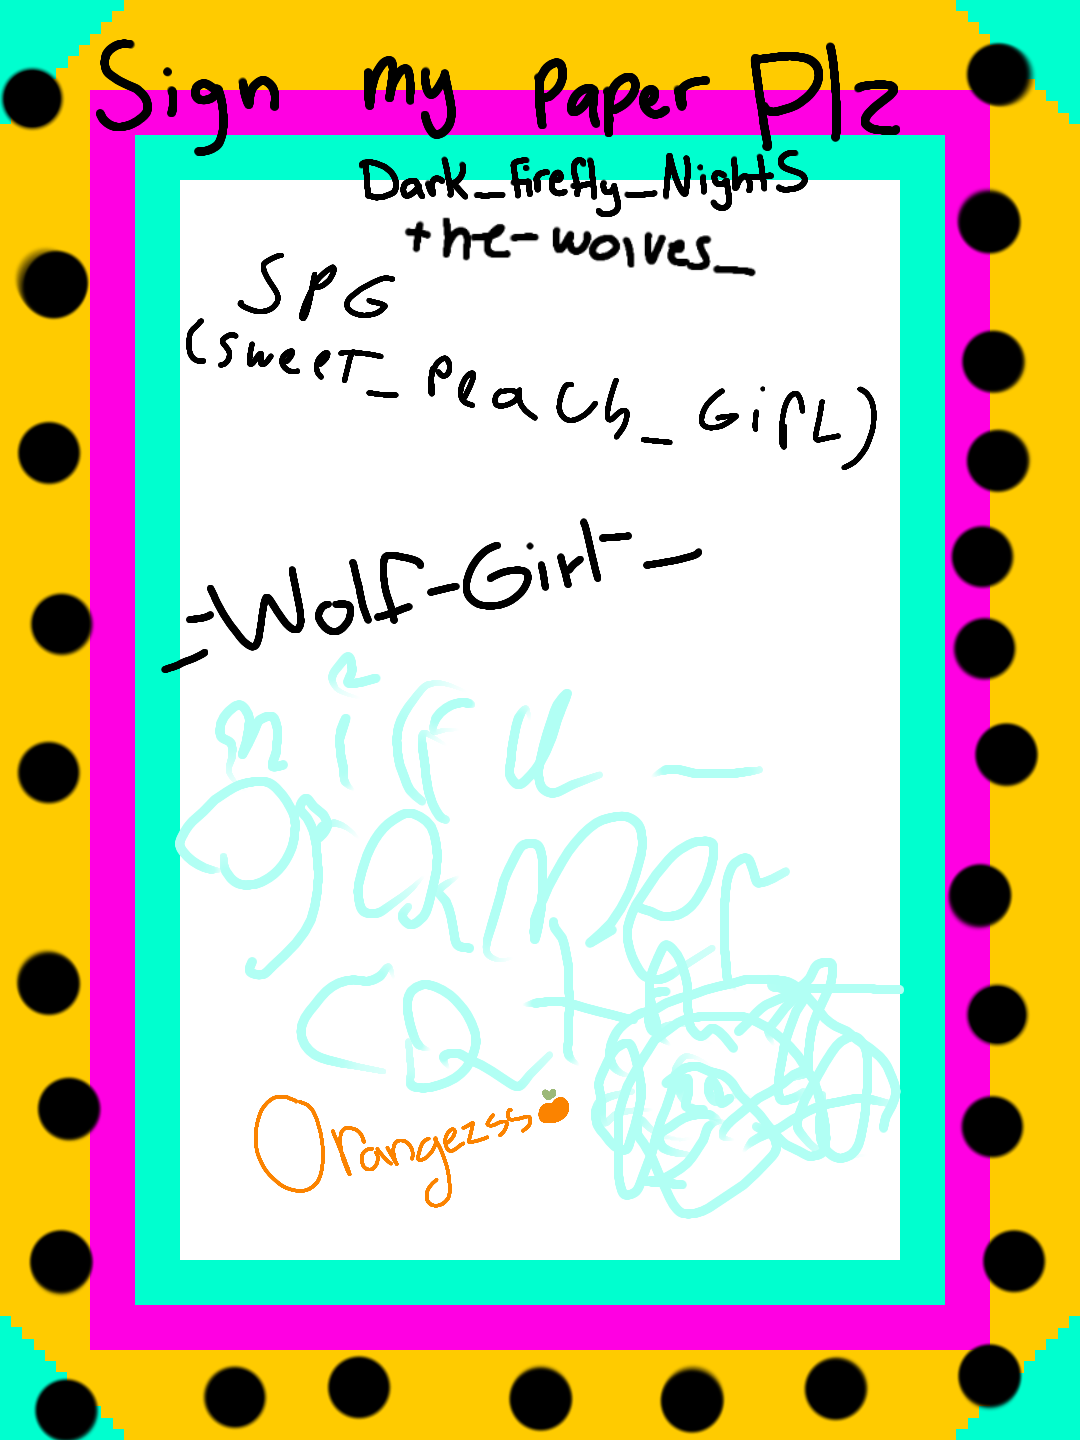 Sign my Paper Plz
Dark_firefly_Nights
the-wolves_
SPG
(sweet_Peach_GirL)
_-Wolf-Girl-_
nifu_
gamer
cat
Orangezss